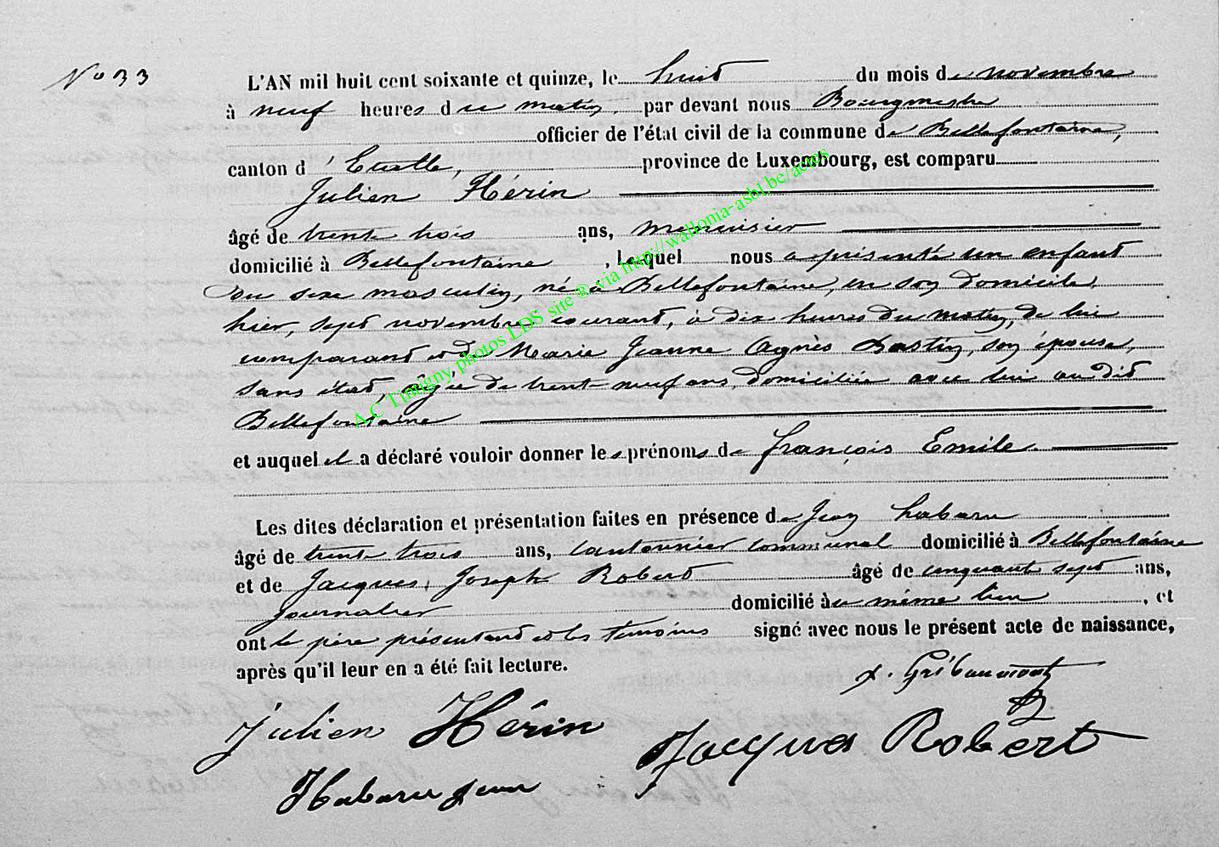 N° 33
L'AN mil huit cent soixante et quinze, le huit du mois de novembre
à neuf heures du matin, par devant nous Bourgmestre
officier de l'état civil de la commune de Bellefontaine,
canton d'Etalle, province de Luxembourg, est comparu
Julien Hérin
âgé de trente trois ans, menuisier
domicilié à Bellefontaine, lequel nous a présenté un enfant
du sexe masculin, né à Bellefontaine, en son domicile,
hier, sept novembre courant, à dix heures du matin, de lui
comparant et de Marie Jeanne Agnès Lastin, son épouse,
sans état, âgée de trente-neuf ans, domiciliée avec lui au dit
Bellefontaine
et auquel il a déclaré vouloir donner les prénoms de françois Emile
Les dites déclaration et présentation faites en présence de Jean habaru
âgé de trente trois ans, cantonnier communal domicilié à Bellefontaine
et de Jacques Joseph Robert âgé de cinquante sept ans,
journalier domicilié au même lieu, et
ont le père présentant et les temoins signé avec nous le présent acte de naissance,
après qu'il leur en a été fait lecture.
Gribaumont
Julien Hérin
Jacques Robert
Habaru Jean
A.C Tintigny photos LDS site & via http://wallonia-asbl.be/actes